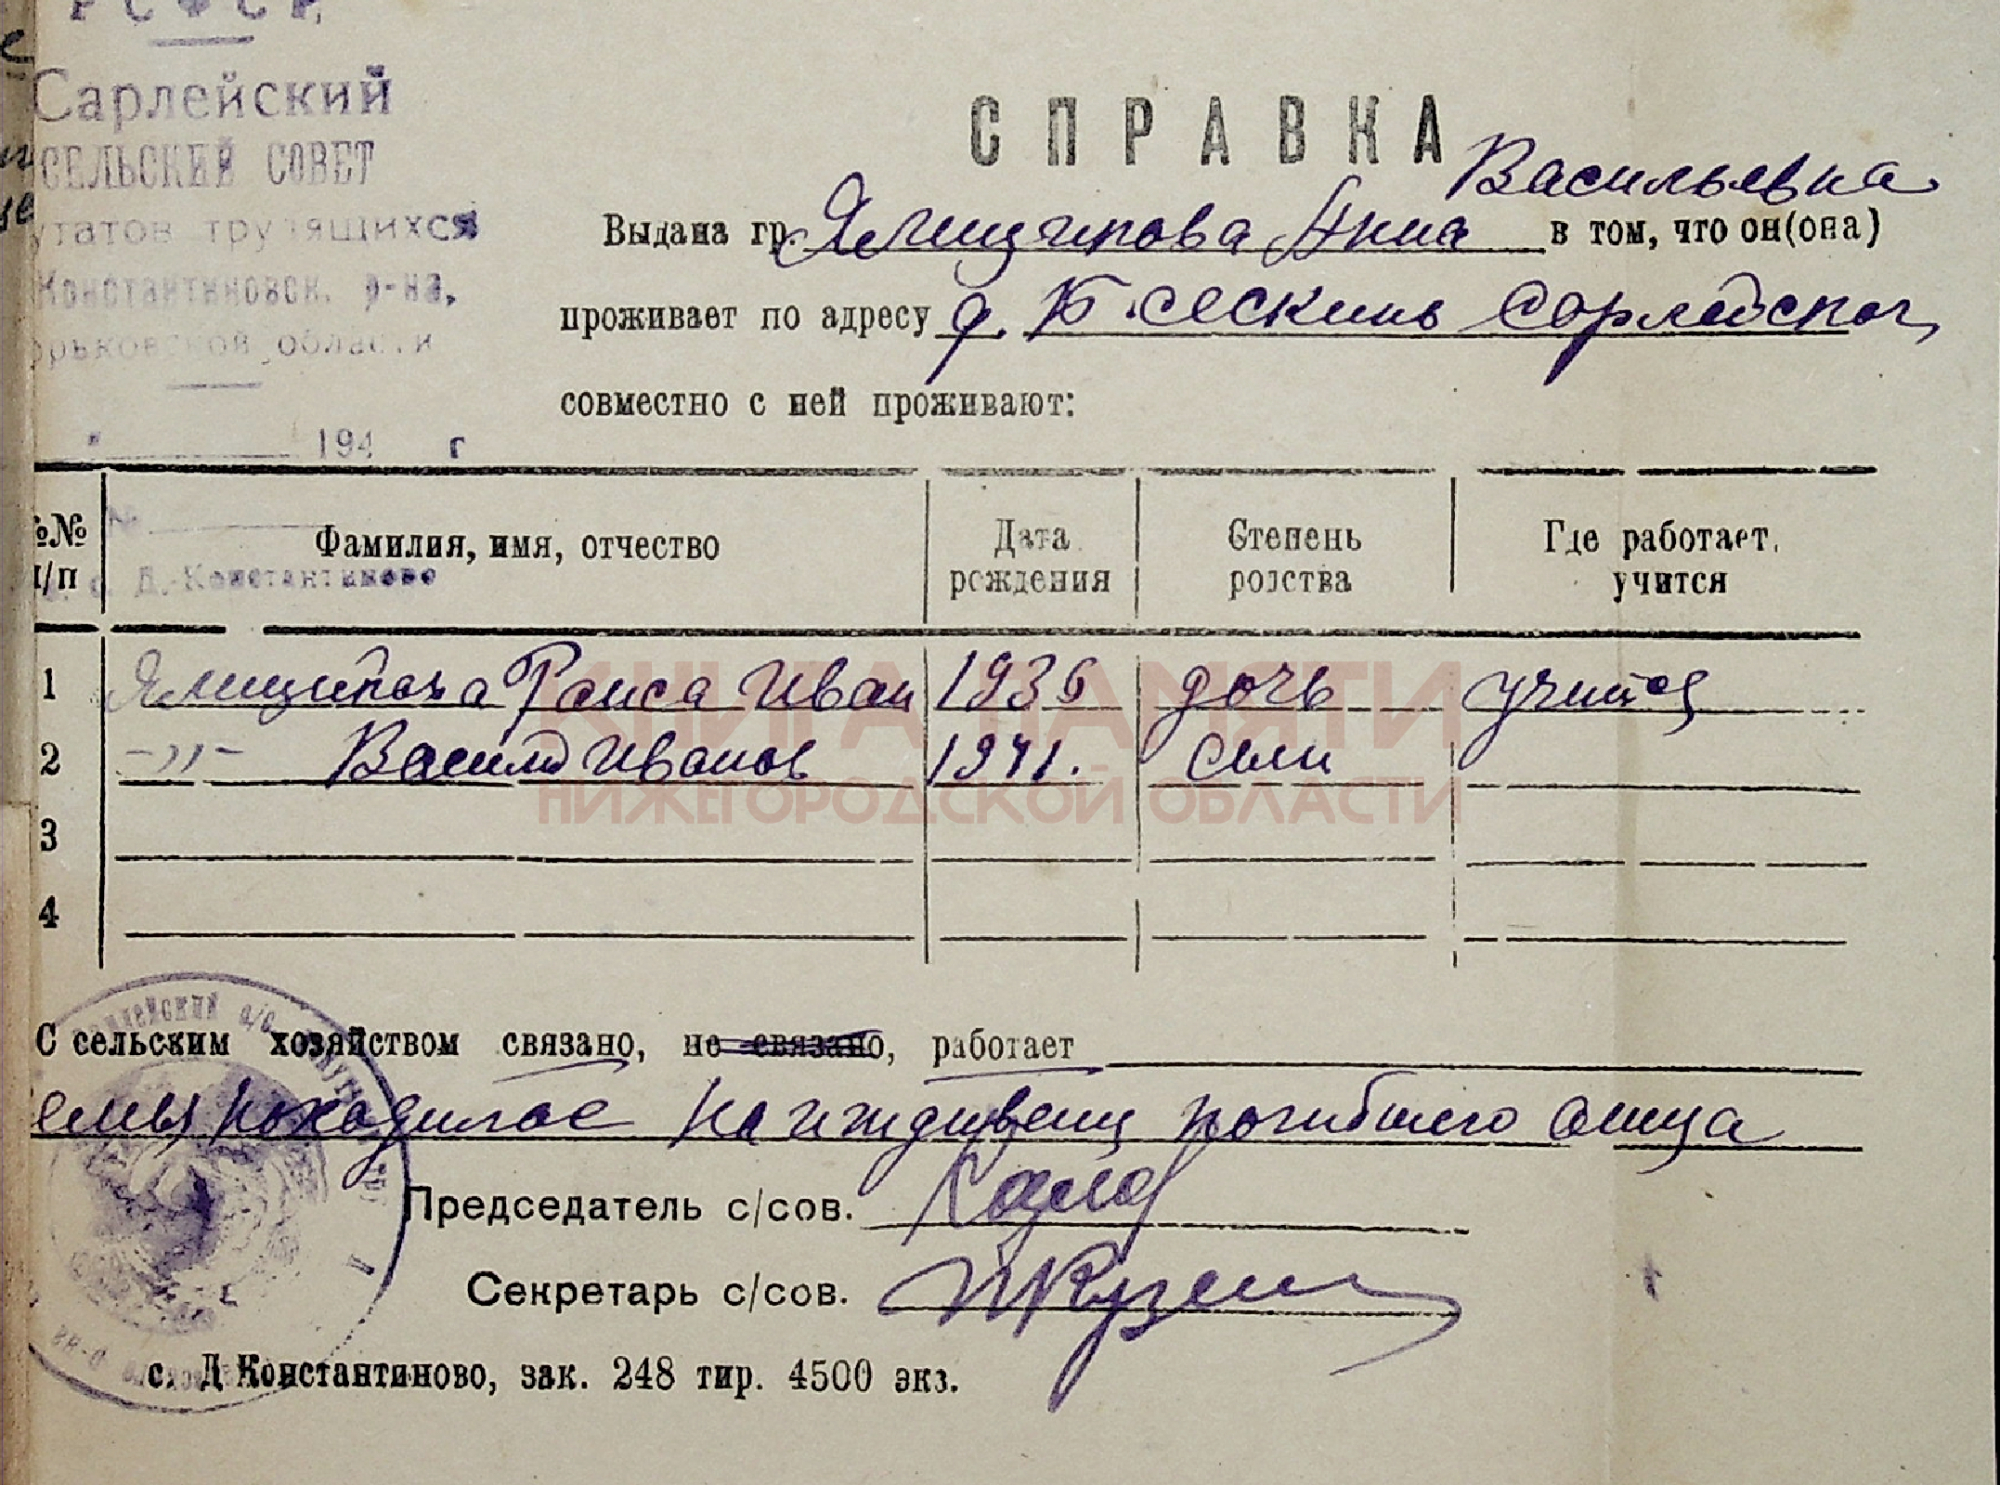 РСФСР,
Сарлейский
СЕЛЬСКИЙ СОВЕТ
утатов трудящихся
Константиновск. р-на,
орьковской области
194 г
№
с. Д.-Константиново
СПРАВКА
Васильевна
Выдана гр. Ямщикова Анна в том, что он(она)
проживает по адресу д. Б сескинь Сарлейског
совместно с ней проживают:
№№ п/п Фамилия, имя, отчество Дата рождения Степень родства Где работает, учится
1 Ямщикова Раиса Иван 1936 дочь учится
2 -"- Василий Иванов 1941. сын
3
4
КНИГА ПАМЯТИ
НИЖЕГОРОДСКОЙ ОБЛАСТИ
С сельским хозяйством связано, не связано, работает
емья находилас на иждивении погибшего отца
Председатель с/сов.
Секретарь с/сов.
с. Д Константиново, зак. 248 тир. 4500 экз.